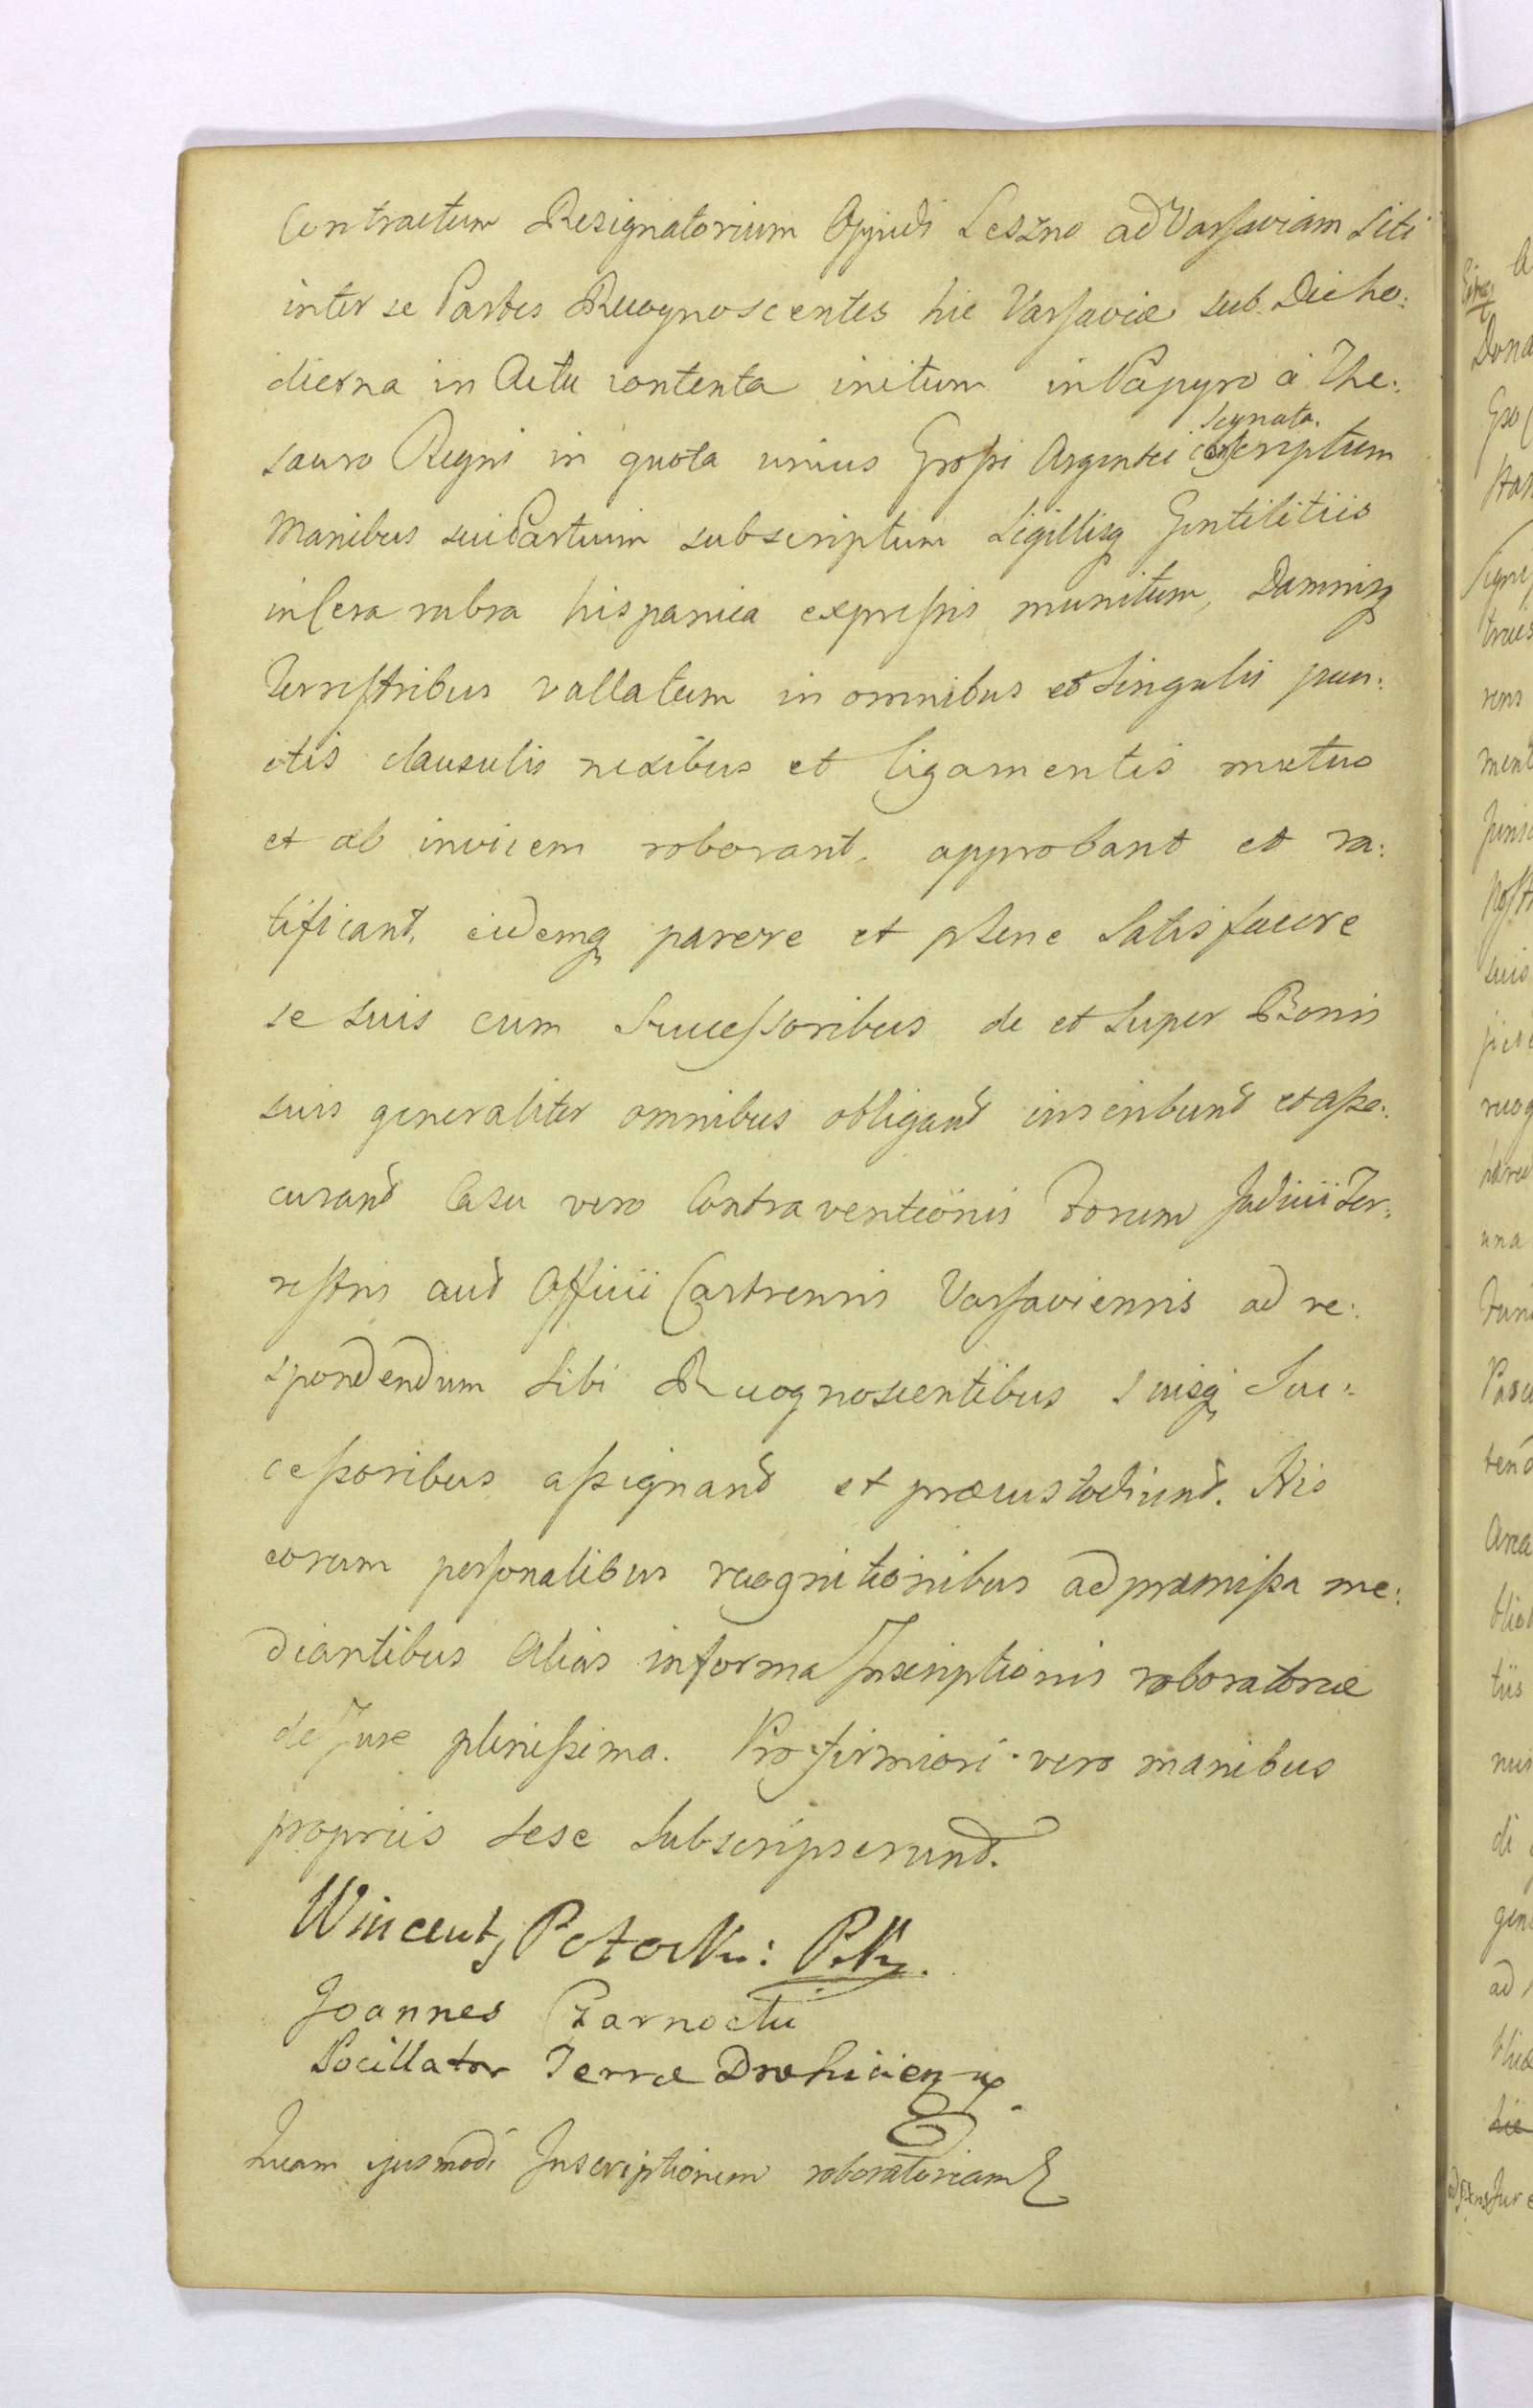 Contractum Resignatorium Oppidi Leszno ad Varsaviam Siti
inter se Partes Recognoscentes hic Varsaviæ sub Die ho:
dierna in Actu contenta initum in Papyro à The:
sauro Regni in quota unius Grossi Argentei signata. conscriptum
Manibus sui Partium subscriptum Sigillisq Gentilitiis
in Cera rubra hispanica expressis munitum, Damnisq
Terrestribus vallatum in omnibus et Singulis pun:
ctis clausulis nexibus et ligamentis mutuo
et ab invicem roborant, approbant et ra:
tificant, eidemq parere et plene Satisfacere
se suis cum Successoribus de et Super Bonis
suis generaliter omnibus obligant inscribunt et asse:
curant Casu vero Contraventionis Forum Judicii Ter:
restris aut Officii Castrensis Varsaviensis ad re:
spondendum Sibi Recognoscentibus suisq Suc:
cessoribus assignant et præcustodiunt. His
eorum personalibus recognitionibus ad præmissa me:
diantibus Alias in forma Inscriptionis roboratoriæ
de Jure plenissima. Pro firmiori vero manibus
propriis sese Subscripserunt.
Wincenty Potocki: P.K.
Joannes Czarnocki
Pocillator Terræ Drohiciensis
Quam ejusmodi Inscriptionem roboratoriam